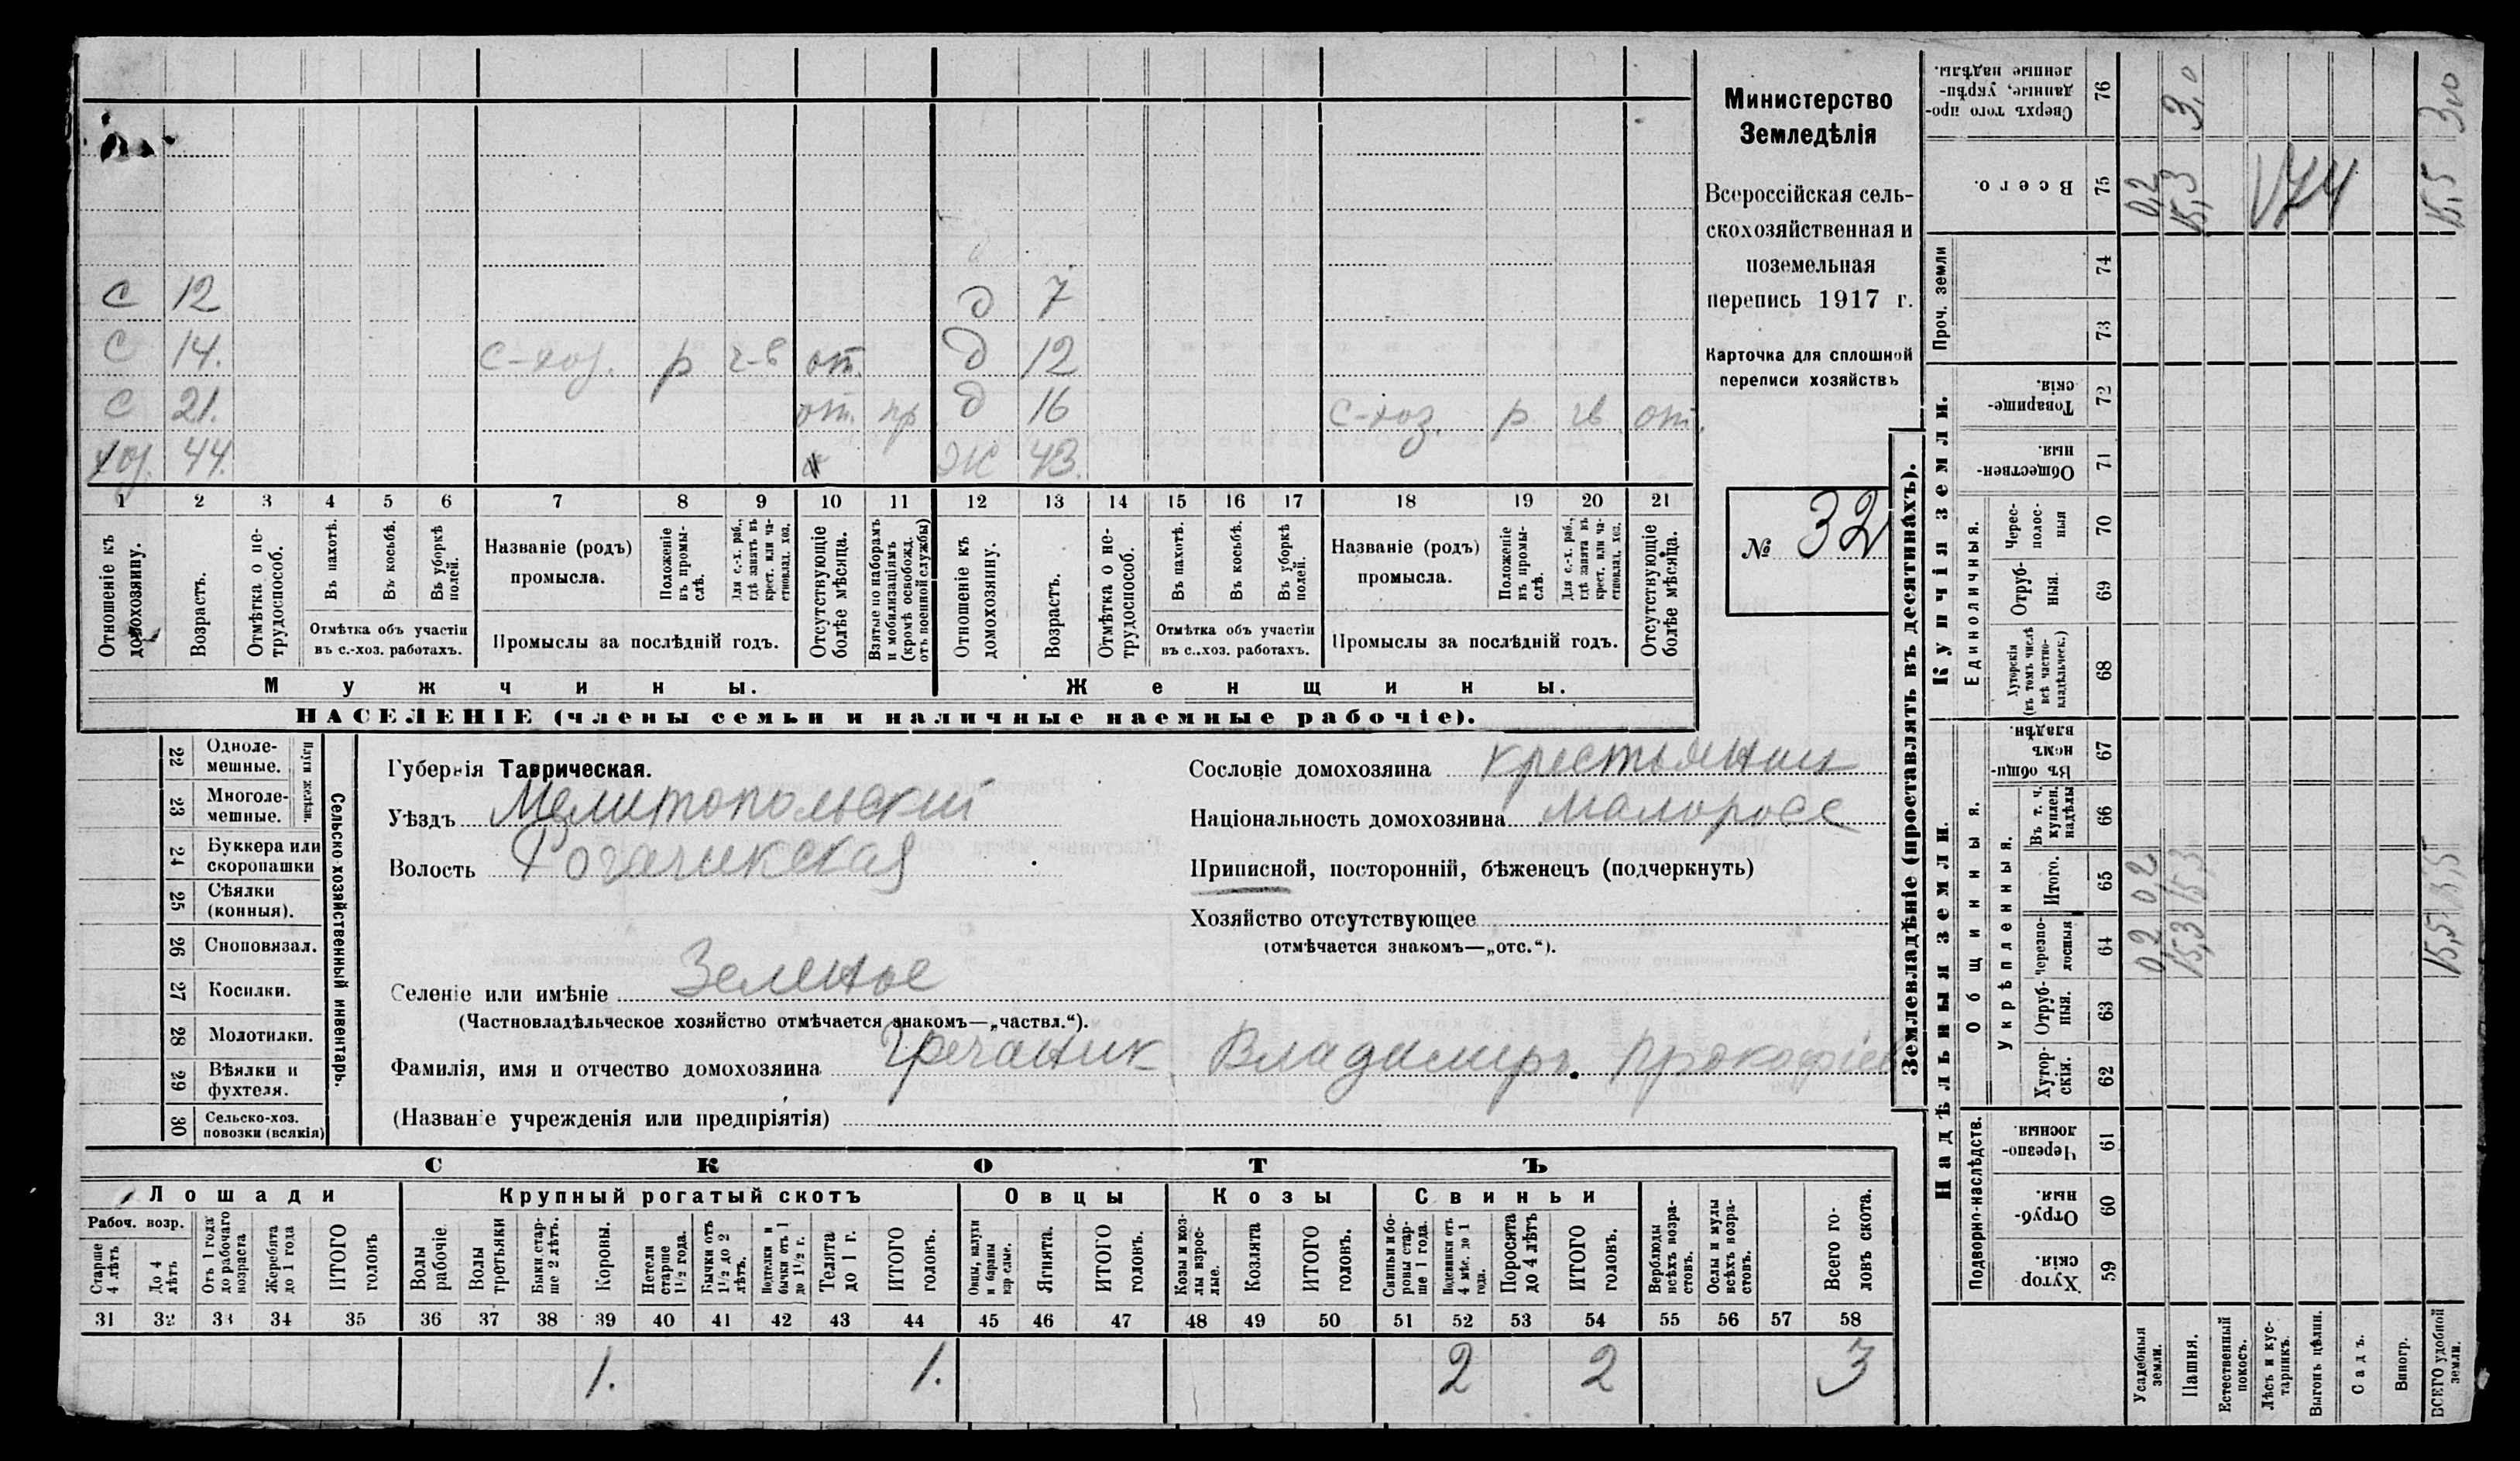 Министерство
Земледѣлія
Всероссійская сель-
скохозяйственная и
поземельная
перепись 1917 г.
Карточка для сплошной
переписи хозяйствъ
№ 32
с 12 д 7
с 14. с-хоз. р ч-в от. д 12
с 21. от. пр д 16 с-хоз. р чв от.
хоз. 44. ж 43.
1 2 3 4 5 6 7 8 9 10 11 12 13 14 15 16 17 18 19 20 21
Отношеніе къ домохозяину.
Возрастъ.
Отмѣтка о не-трудоспособ.
Въ пахотѣ.
Въ косьбѣ.
Въ уборкѣ полей.
Отмѣтка объ участіи
въ с.-хоз. работахъ.
Названіе (родъ)
промысла.
Положеніе въ промы-слѣ.
Для с.-х. раб., гдѣ занятъ въ крест. или ча-стновлад. хоз.
Промыслы за послѣдній годъ.
Отсутствующіе болѣе мѣсяца.
Взятые по наборамъ и мобилизаціямъ (кромѣ освобожд. отъ военной службы)
Отношеніе къ домохозяину.
Возрастъ.
Отмѣтка о не-трудоспособ.
Въ пахотѣ.
Въ косьбѣ.
Въ уборкѣ полей.
Отмѣтка объ участіи
въ с.-хоз. работахъ.
Названіе (родъ)
промысла.
Положеніе въ промы-слѣ.
Для с.-х. раб., гдѣ занята въ крест. или ча-стновлад. хоз.
Промыслы за послѣдній годъ.
Отсутствующіе болѣе мѣсяца.
Мужчины. Женщины.
НАСЕЛЕНІЕ (члены семьи и наличные наемные рабочіе).
22 Одноле-мешные.
23 Многоле-мешные.
Плуги желѣзн.
24 Буккера или скоропашки
25 Сѣялки (конныя).
26 Сноповязал.
27 Косилки.
28 Молотилки.
29 Вѣялки и фухтеля.
30 Сельско-хоз. повозки (всякія)
Сельско-хозяйственный инвентарь.
Губернія Таврическая.
Уѣздъ Мелитопольский
Волость Рогачикская
Селеніе или имѣніе Зеленое
(Частновладѣльческое хозяйство отмѣчается знакомъ—„частвл.“).
Фамилія, имя и отчество домохозяина Гречаник Владимиръ Прокофіев
(Названіе учрежденія или предпріятія)
Сословіе домохозяина крестьянин
Національность домохозяина малоросс
Приписной, посторонній, бѣженецъ (подчеркнуть)
Хозяйство отсутствующее
(отмѣчается знакомъ—„отс.“).
СКОТЪ
Лошади Крупный рогатый скотъ Овцы Козы Свиньи
Рабоч. возр.
Старше 4 лѣтъ
До 4 лѣтъ
Отъ 1 года до рабочаго возраста
Жеребята до 1 года
ИТОГО головъ
Волы рабочіе
Волы третьяки
Быки стар-ше 2 лѣтъ.
Коровы.
Нетели старше 1½ года.
Бычки отъ 1½ до 2 лѣтъ.
Подтелки и бычки отъ 1 до 1½ г.
Телята до 1 г.
ИТОГО головъ.
Овцы, валухи и бараны взрослые.
Ягнята.
ИТОГО головъ.
Козы и коз-лы взрос-лые.
Козлята
ИТОГО головъ.
Свиньи и бо-ровы стар-ше 1 года.
Подсвинки отъ 4 мѣс. до 1 года.
Поросята до 4 лѣтъ
ИТОГО головъ.
Верблюды всѣхъ возра-стовъ.
Ослы и мулы всѣхъ возра-стовъ.
Всего го-ловъ скота.
31 32 33 34 35 36 37 38 39 40 41 42 43 44 45 46 47 48 49 50 51 52 53 54 55 56 57 58
1. 1. 2 2 3
Землевладѣніе (проставлять въ десятинахъ).
Купчія земли.
Надѣльныя земли.
Сверхъ того про-данные, укрѣп-ленные надѣлы. 76 3,0 3,0
Всего. 75 0,2 15,3 V74 15,5
Проч. земли 74 73
Товарище-скія. 72
Обществен-ныя. 71
Единоличныя.
Черес-полос-ныя 70
Отруб-ныя. 69
Хуторскія (въ томъ числѣ всѣ частно-владѣльческ.) 68
Общинныя.
Въ общи-номъ владѣн. 67
Укрѣпленныя.
Въ т. ч. куплен. надѣлы 66
Итого. 65 0,2 15,3 15,5
Черезпо-лосныя 64 0,2 15,3 15,5
Отруб-ныя. 63
Хутор-скія. 62
Подворно-наслѣдств.
Черезпо-лосныя. 61
Отруб-ныя. 60
Хутор-скія. 59
Усадебныя земли.
Пашня.
Естественный покосъ.
Лѣсъ и кус-тарникъ.
Выгонъ цѣлин.
Садъ.
Виногр.
ВСЕГО удобной земли.